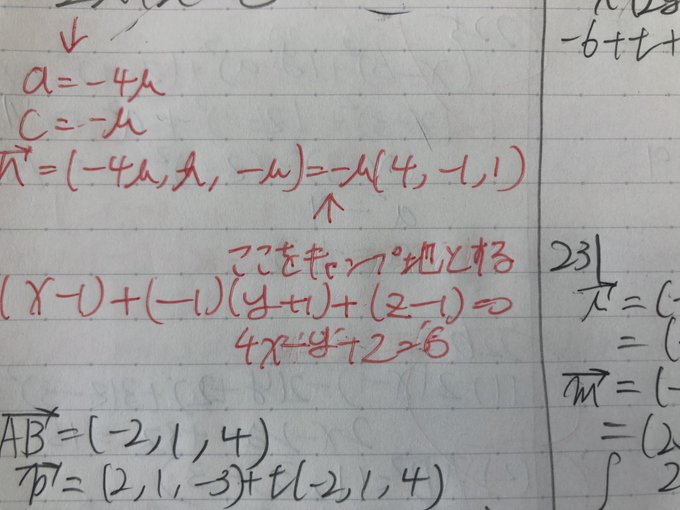 ↓
a=-4μ
c=-μ
n→=(-4μ, μ, -μ)=-μ(4, -1, 1)
↑
ここをキャンプ地とする
(x-1)+(-1)(y+1)+(z-1)=0
4x-y+z=6
AB→=(-2, 1, 4)
p→=(2, 1, -3)+t(-2, 1, 4)
-6+t+
231
=(-
=(
m→=(-
=(2
2